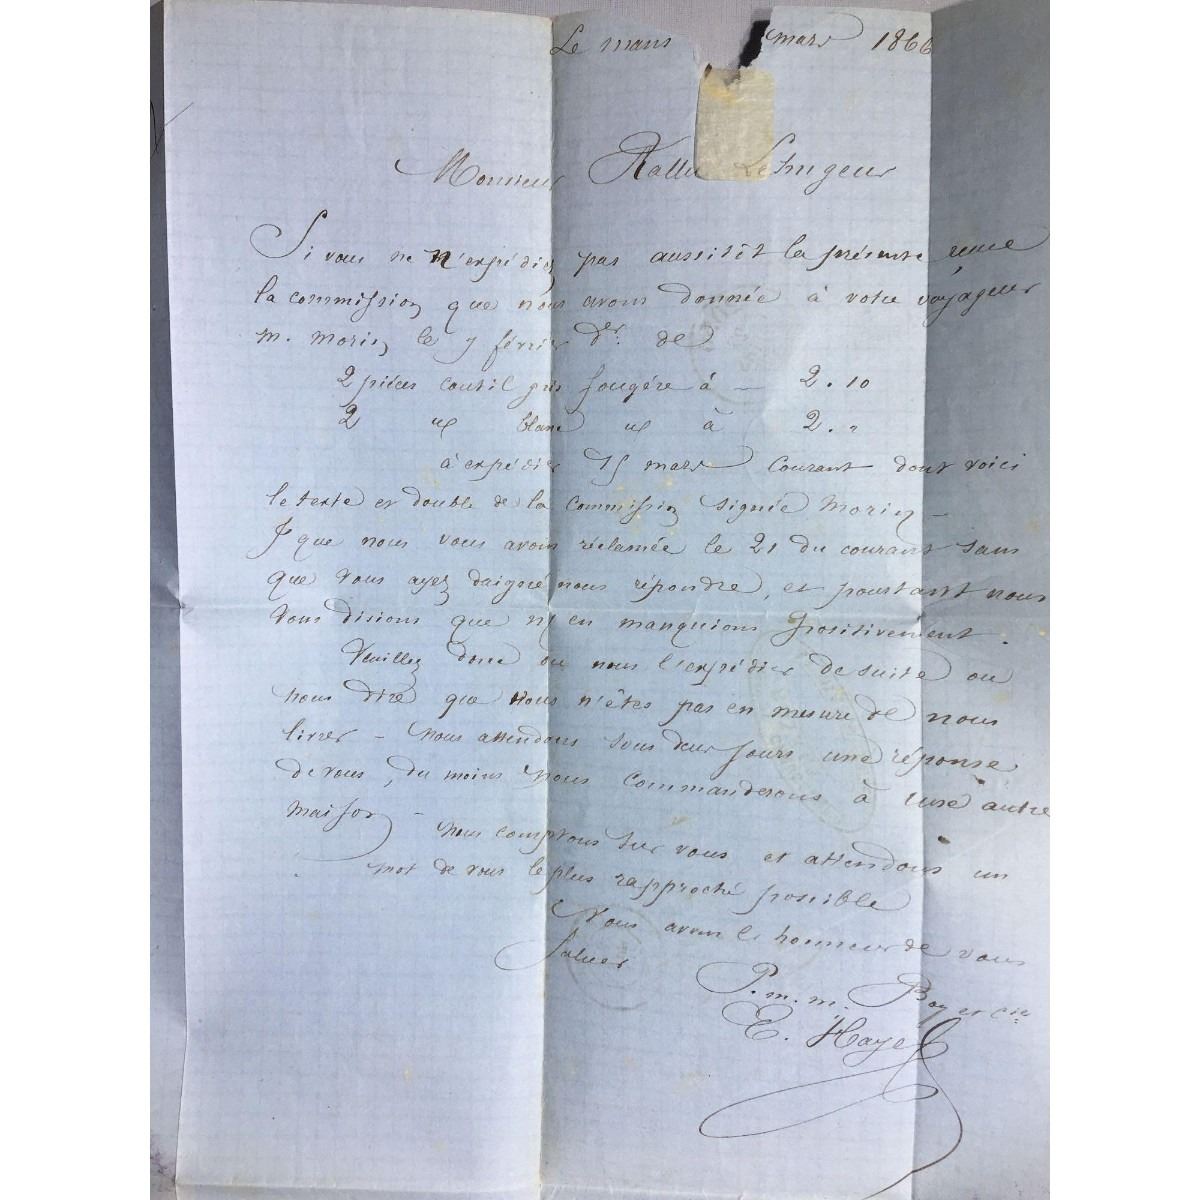 Le mans mars 1866
Monsieur Lehugeur
Si vous ne n'expédiez pas aussitôt la présente reçue
la commission que nous avons donnée à votre voyageur
m. Morin le 7 février der. de
2 pièces coutil gris fougère à — 2.10
2 " blanc " à 2."
à expédier 15 mars courant dont voici
le texte et double de la commission signée Morin —
que nous vous avons réclamée le 21 du courant sans
que vous ayez daigné nous répondre, et pourtant nous
vous disions que n/ en manquions positivement.
Veuillez donc ou nous l'expédier de suite ou
nous dire que vous n'êtes pas en mesure de nous
livrer — Nous attendons sous deux jours une réponse
de vous, du moins nous commanderons à une autre
maison —
Nous comptons sur vous et attendons un
mot de vous le plus rapproché possible
Nous avons le honneur de vous
saluer
P. m. m. Boy et Cie
E. Haye